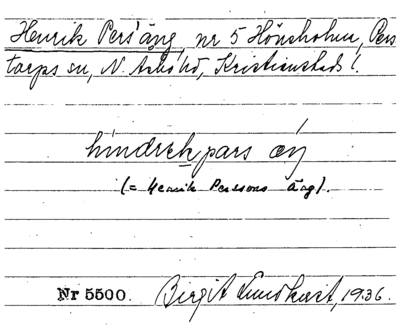 Henrik Pers' äng, nr 5 Hönsholm, Pers
torps sn, N. Åsbo hd, Kristianstads l.
hindrek pars æŋ
(= Henrik Perssons äng).
Nr 5500. Birgit Lundkvist, 1936.